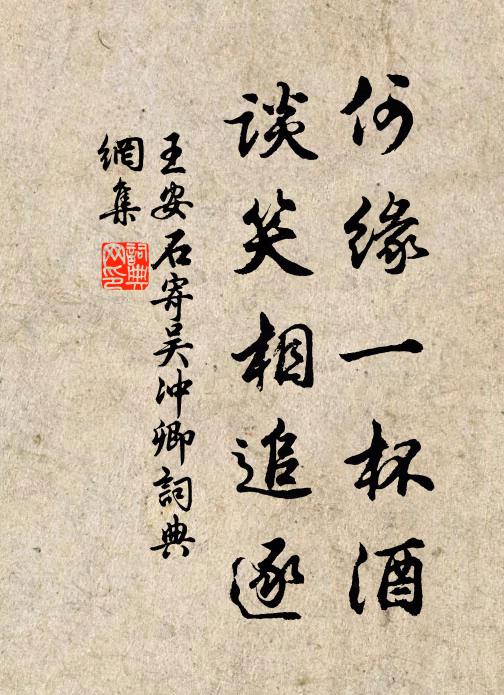 何緣一杯酒
谈笑相追逐
王安石寄吴冲卿詞典
網集
詞典
网印